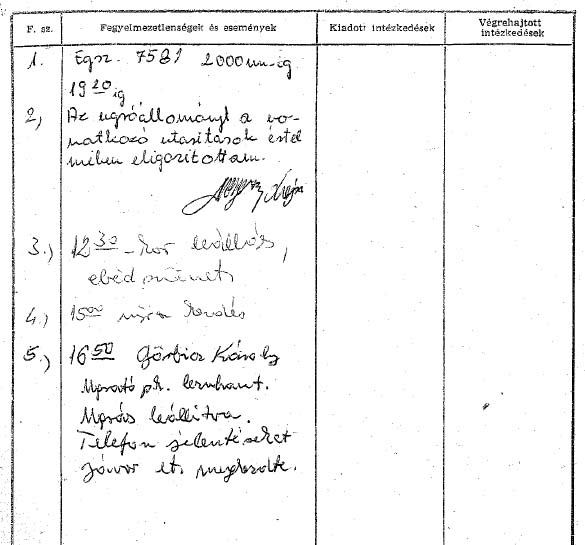 F. sz. Fegyelmezetlenségek és események Kiadott intézkedések Végrehajtott intézkedések
1. Egsz. 7581 2000 mm-ig
19 20 ig
2, Az ugróállományt a vo-
natkozó utasítások értel
mében eligazítottam.
3.) 12 30 -kor leállás,
ebédszünet,
4.) 15 00 újra kezdés
5.) 16 50 Görbicz Károly
ugrató pk. lezuhant.
Ugrás leállítva.
Telefon jelentéseket
Jávor et. megkezdte.